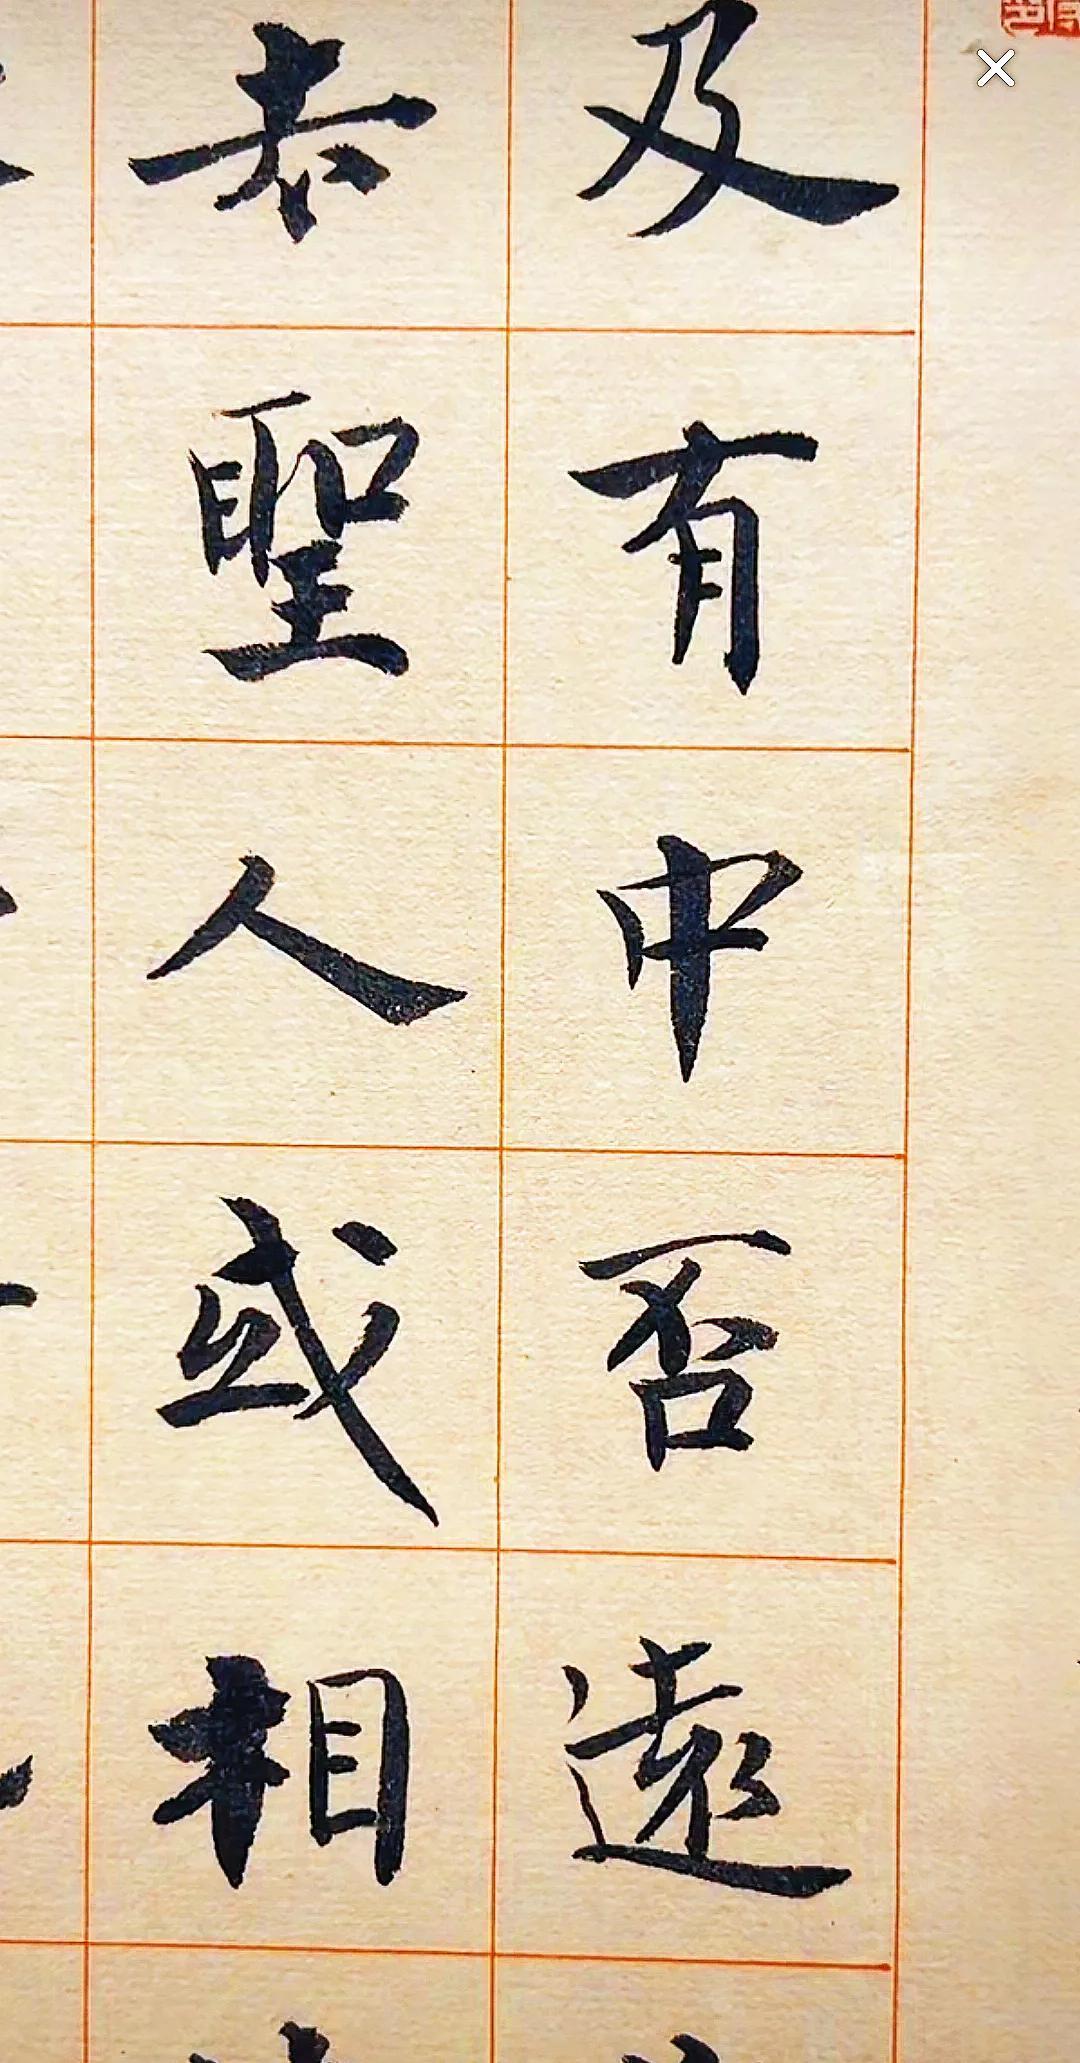 及有中否遠
聖人或相